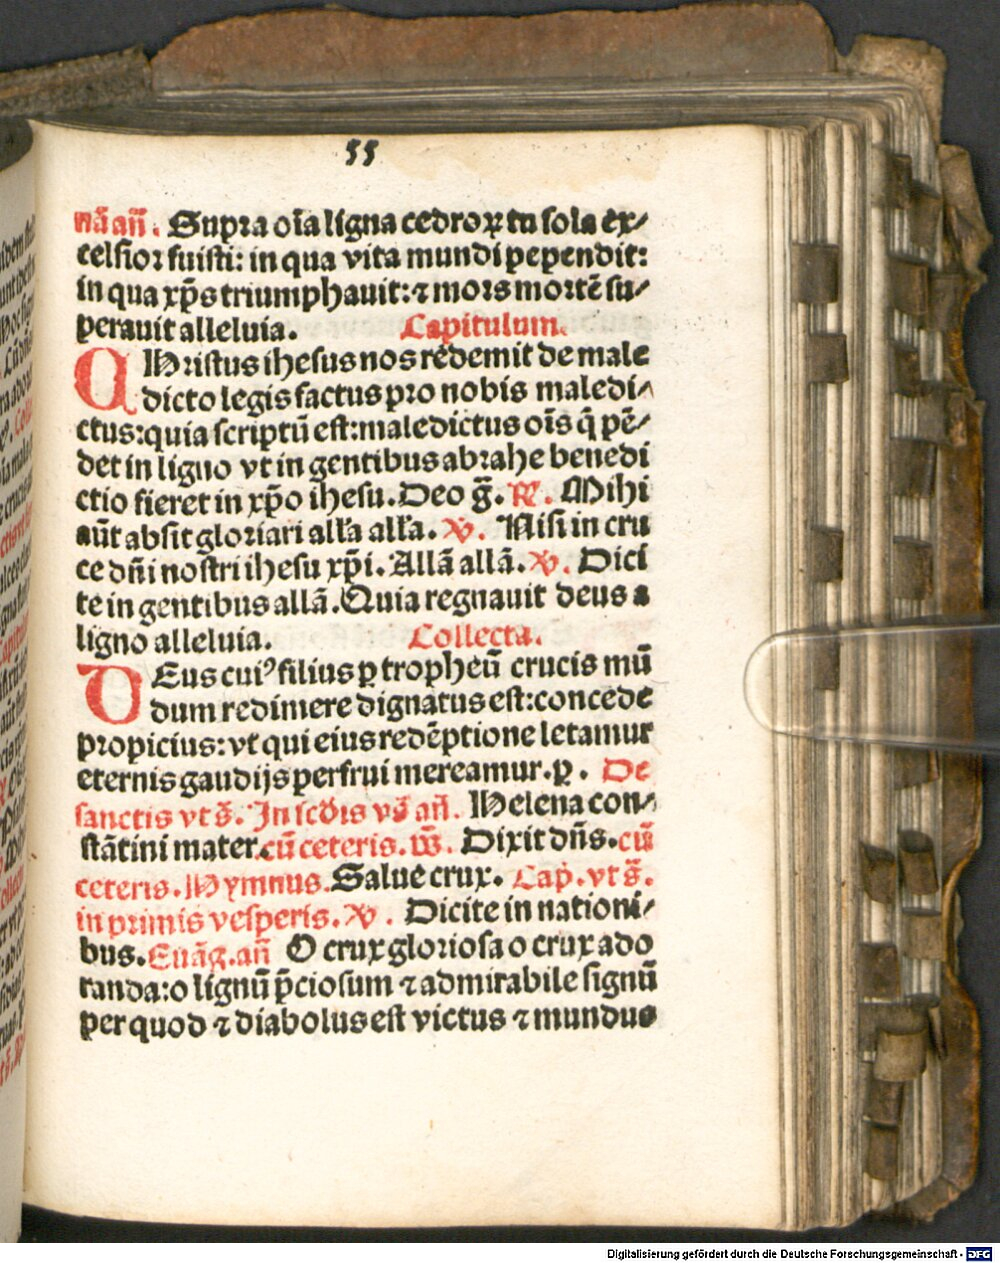 55
nã añ. Supra oĩa ligna cedroꝝ tu sola ex/
celsior fuisti: in qua vita mundi pependit:
in qua xp̃s triumphauit: ⁊ mors mortẽ su/
perauit alleluia. Capitulum.
CHristus ihesus nos redemit de male
dicto legis factus pro nobis maledi/
ctus: quia scriptũ est: maledictus oĩs q̃ pẽ/
det in ligno vt in gentibus abrahe benedi
ctio fieret in xp̃o ihesu. Deo g̃. ℞. Mihi
aũt absit gloriari all'a all'a. ℣. Nisi in cru
ce dñi nostri ihesu xp̃i. Allã allã. ℣. Dici
te in gentibus allã. Quia regnauit deus a
ligno alleluia. Collecta.
DEus cuiꝰ filius ꝑ tropheũ crucis mũ
dum redimere dignatus est: concede
propicius: vt qui eius redẽptione letamur
eternis gaudijs perfrui mereamur. ꝑ. De
sanctis vt s̃. In scd̃is vs̃ añ. Helena con/
stãtini mater. cũ ceteris. p̃s̃. Dixit dñs. cũ
ceteris. Hymnus. Salue crux. Cap. vt s̃.
in primis vesperis. ℣. Dicite in nationi/
bus. Euãg. añ O crux gloriosa o crux ado
randa: o lignũ p̃ciosum ⁊ admirabile signũ
per quod ⁊ diabolus est victus ⁊ mundus
Digitalisierung gefördert durch die Deutsche Forschungsgemeinschaft - DFG